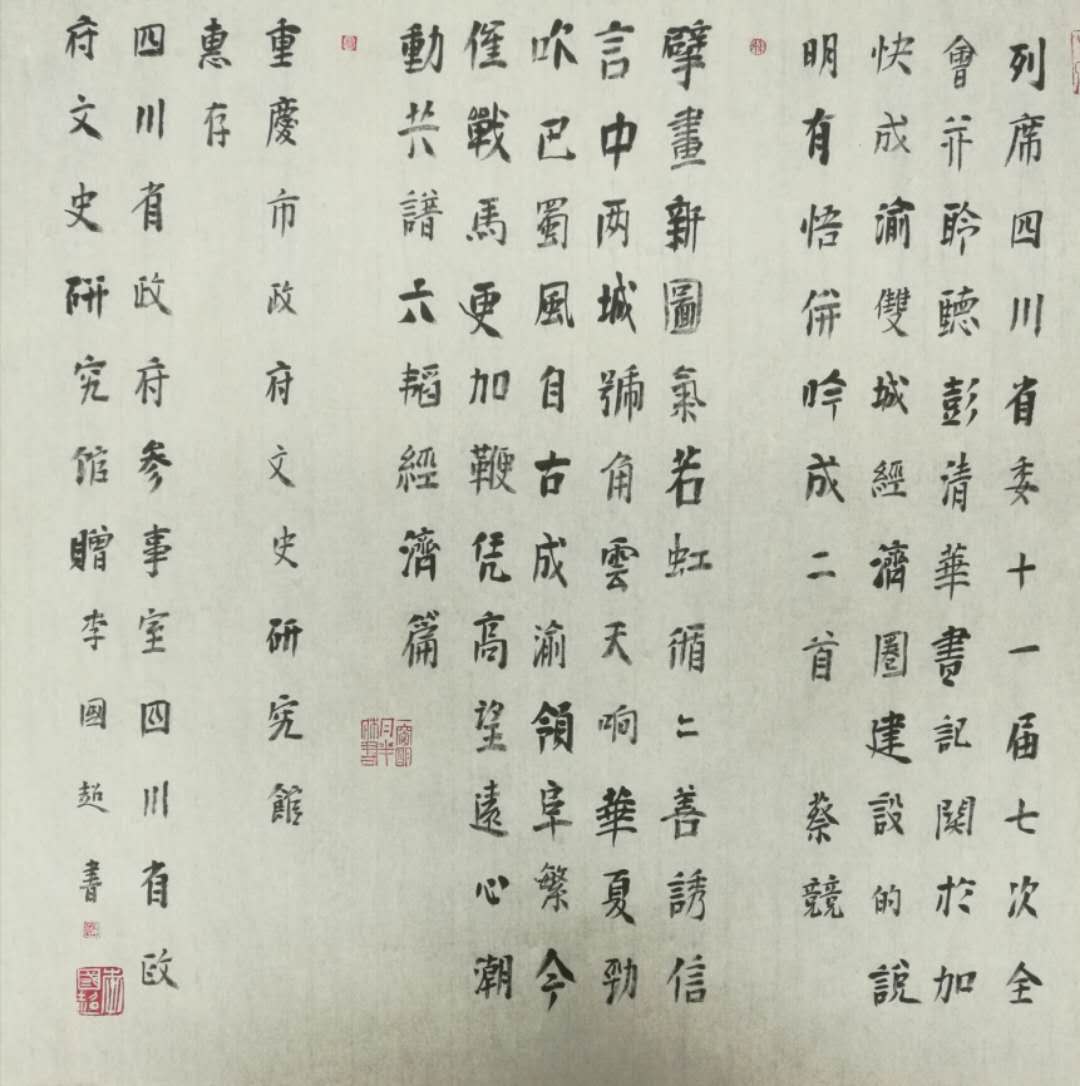 列席四川省委十一届七次全
會并聆聽彭清華書記関於加
快成渝雙城經濟圈建設的說
明有悟併吟成二首 蔡競
擘畫新圖氣若虹循々善誘信
言中两城號角雲天响華夏勁
吹巴蜀風自古成渝領阜繁今
催戰馬更加鞭凭高望遠心潮
動共譜六韜經濟篇
重慶市政府文史研究館
惠存
四川省政府參事室四川省政
府文史研究館贈李國超書